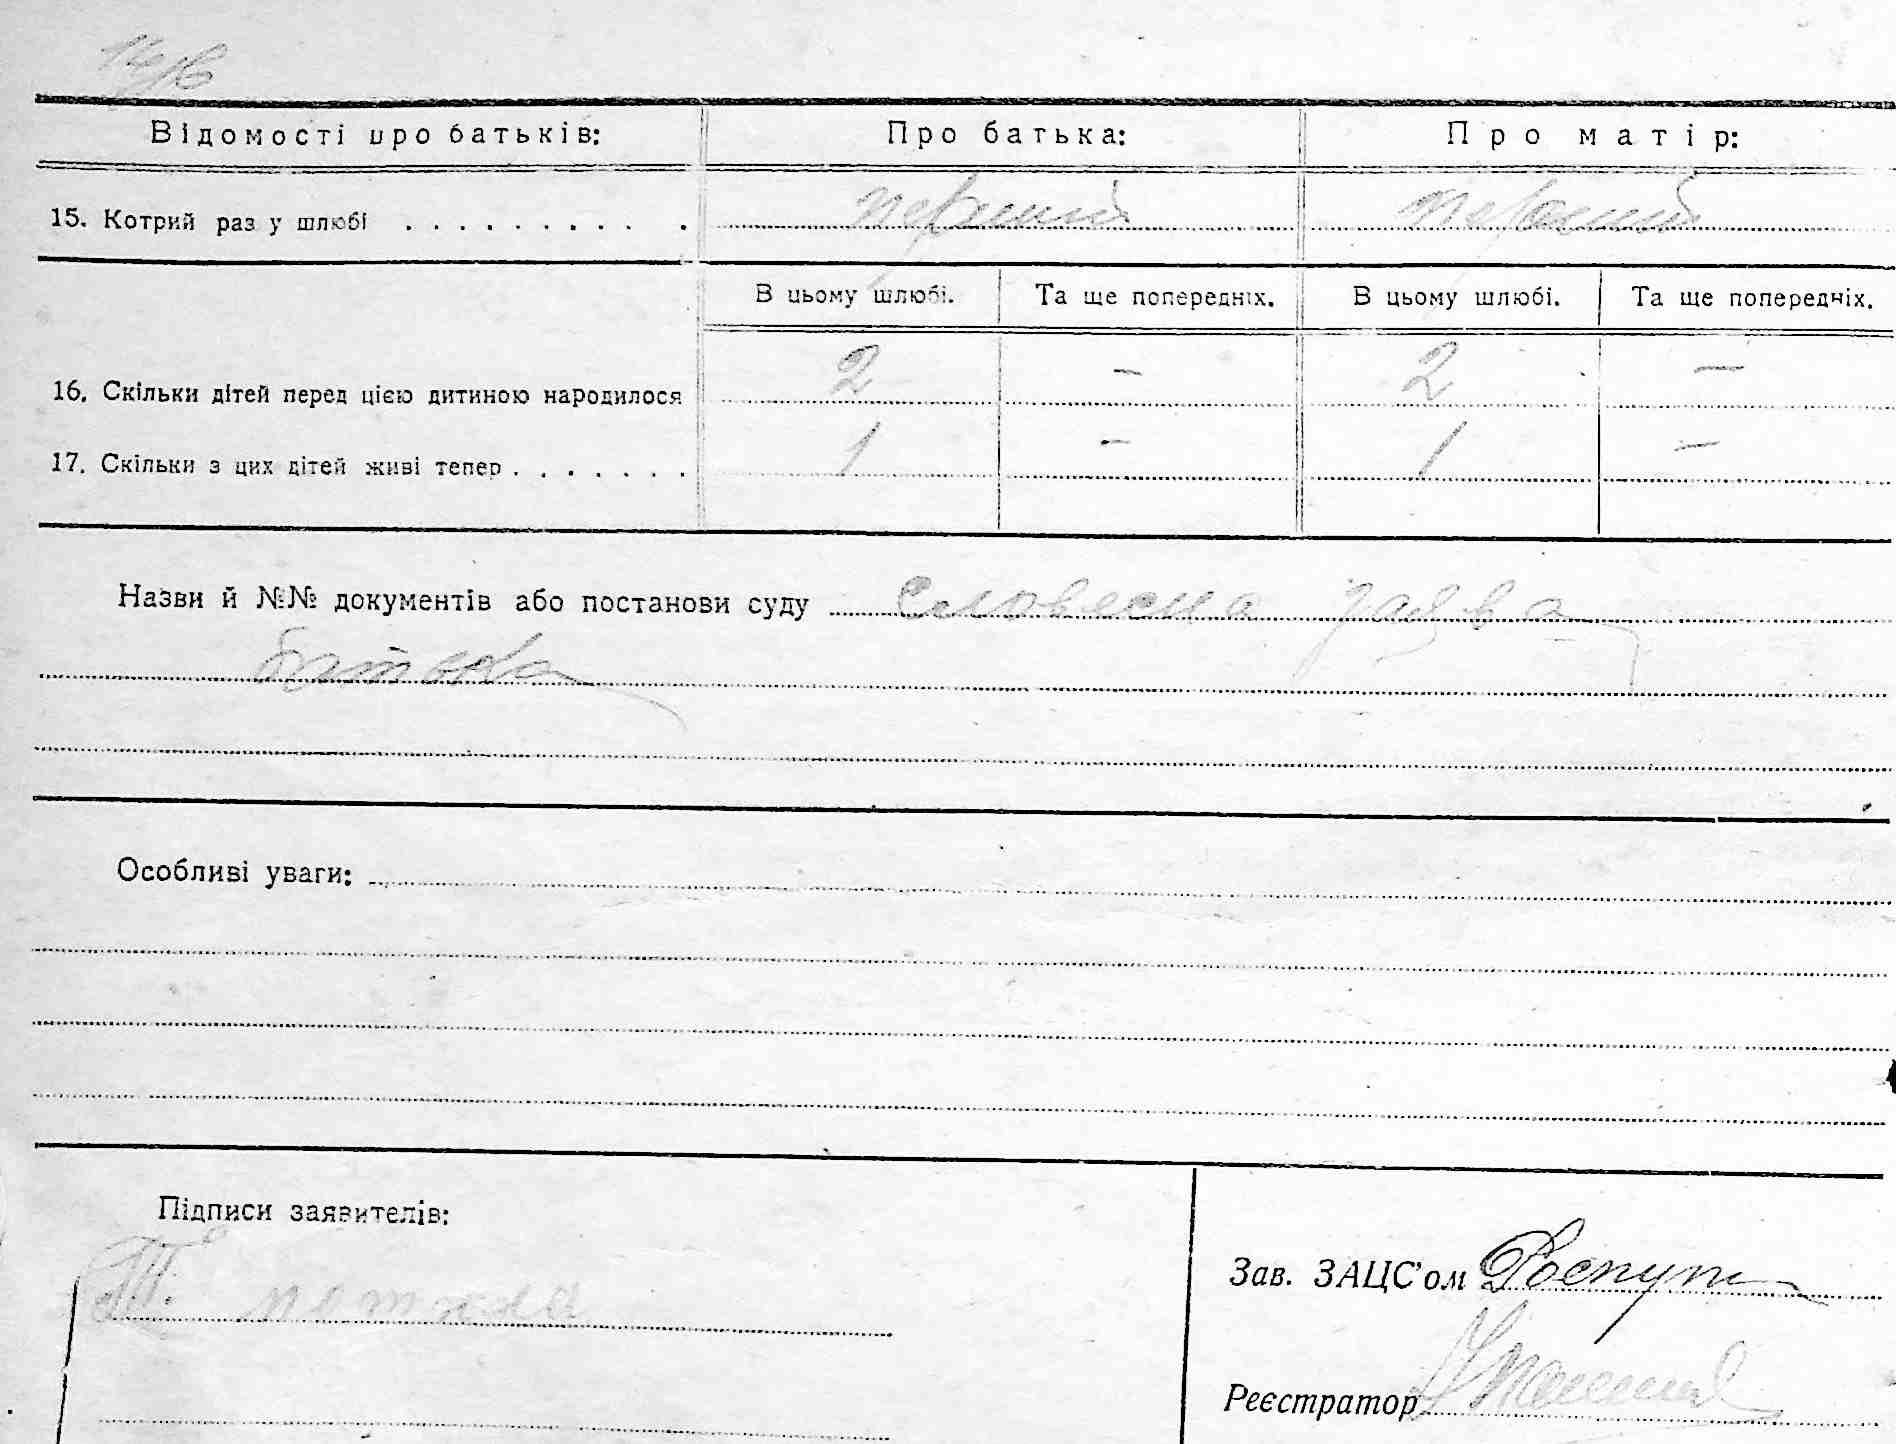 Відомості про батьків: Про батька: Про матір:
15. Котрий раз у шлюбі . . . . . . . . . . перший перший
В цьому шлюбі. Та ще попередніх. В цьому шлюбі. Та ще попередніх.
16. Скільки дітей перед цією дитиною народилося 2 — 2 —
17. Скільки з цих дітей живі тепер . . . . . . . 1 — 1 —
Назви й №№ документів або постанови суду словесна заява
батька
Особливі уваги:
Підписи заявителів:
Зав. ЗАЦС'ом
Реєстратор